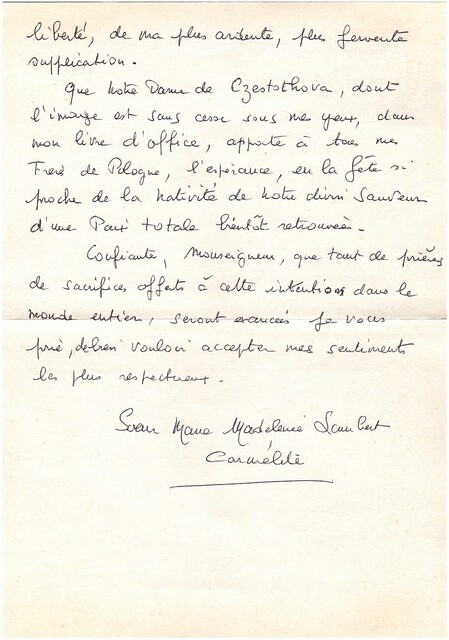 liberté, de ma plus ardente, plus fervente
supplication.
Que Notre Dame de Czestothova, dont
l'image est sans cesse sous mes yeux, dans
mon livre d'office, apporte à tous mes
Frère de Pologne, l'espérance, en la fête si
proche de la Nativité de Notre divin Sauveur
d'une Paix totale bientôt retrouvée.
Confiante, Monseigneur, que tant de prières
de sacrifices offerts à cette intention dans le
monde entier, seront exaucés je vous
prie, de bien vouloir accepter mes sentiments
les plus respectueux.
Soeur Marie Madeleine Lambert
Carmélite